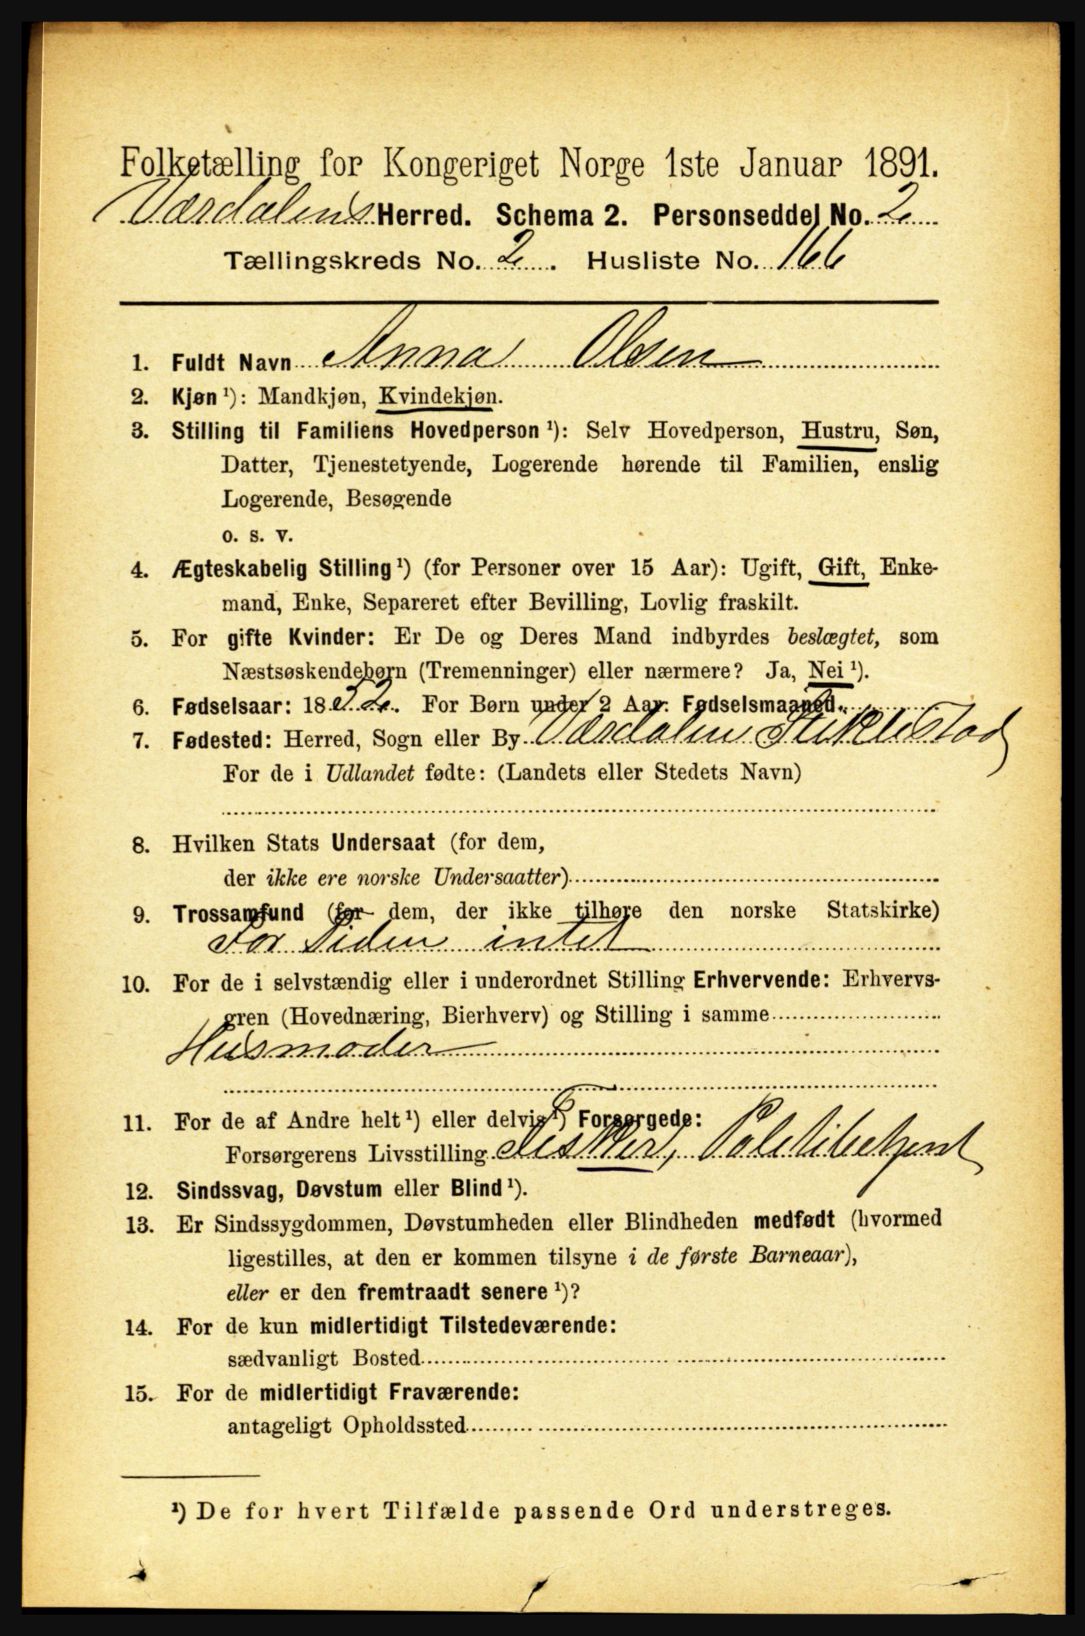 Folketælling for Kongeriget Norge 1ste Januar 1891.
Værdalens Herred. Schema 2. Personseddel No. 2
Tællingskreds No. 2. Husliste No. 166
1. Fuldt Navn Anna Olsen
2. Kjøn ¹): Mandkjøn, Kvindekjøn.
3. Stilling til Familiens Hovedperson ¹): Selv Hovedperson, Hustru, Søn,
Datter, Tjenestetyende, Logerende hørende til Familien, enslig
Logerende, Besøgende
o. s. v.
4. Ægteskabelig Stilling ¹) (for Personer over 15 Aar): Ugift, Gift, Enke-
mand, Enke, Separeret efter Bevilling, Lovlig fraskilt.
5. For gifte Kvinder: Er De og Deres Mand indbyrdes beslægtet, som
Næstsøskendebørn (Tremenninger) eller nærmere? Ja, Nei ¹).
6. Fødselsaar: 18 For Børn under 2 Aar: Fødselsmaaned
7. Fødested: Herred, Sogn eller By Værdalen Stiklestad
For de i Udlandet fødte: (Landets eller Stedets Navn)
8. Hvilken Stats Undersaat (for dem,
der ikke ere norske Undersaatter)
9. Trossamfund (for dem, der ikke tilhøre den norske Statskirke)
For Tiden intet
10. For de i selvstændig eller i underordnet Stilling Erhvervende: Erhvervs-
gren (Hovednæring, Bierhverv) og Stilling i samme
Husmoder
11. For de af Andre helt ¹) eller delvis ¹) Forsørgede:
Forsørgerens Livsstilling Fisker, Politibetjent
12. Sindssvag, Døvstum eller Blind ¹).
13. Er Sindssygdommen, Døvstumheden eller Blindheden medfødt (hvormed
ligestilles, at den er kommen tilsyne i de første Barneaar),
eller er den fremtraadt senere ¹)?
14. For de kun midlertidigt Tilstedeværende:
sædvanligt Bosted
15. For de midlertidigt Fraværende:
antageligt Opholdssted
¹) De for hvert Tilfælde passende Ord understreges.